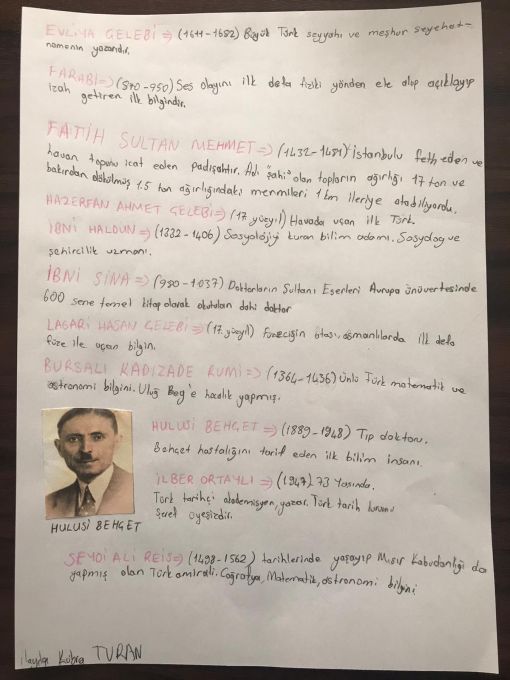 EVLİYA ÇELEBİ => (1611-1682) Büyük Türk seyyahı ve meşhur seyehat-
namenin yazarıdır.
FARABİ => (870-950) Ses olayını ilk defa fiziki yönden ele alıp açıklayıp
izah getiren ilk bilgindir.
FATİH SULTAN MEHMET => (1432-1481) İstanbulu feth eden ve
havan topunu icat eden padişahtır. Adı "şahi" olan topların ağırlığı 17 ton ve
bakırdan dökülmüş 1.5 ton ağırlığındaki mermileri 1 km ileriye atabiliyordu.
HAZERFAN AHMET ÇELEBİ => (17. yüzyıl) Havada uçan ilk Türk.
İBNİ HALDUN => (1332-1406) Sosyolojiyi kuran bilim adamı. Sosyolog ve
şehircilik uzmanı.
İBNİ SİNA => (980-1037) Doktorların Sultanı Eserleri Avrupa ünüvertesinde
600 sene temel kitap olarak okutulan dahi doktor
LAGARİ HASAN ÇELEBİ => (17. yüzyıl) Füzeciğin atası, osmanlılarda ilk defa
füze ile uçan bilgin.
BURSALI KADIZADE RUMİ => (1364-1436) Ünlü Türk matematik ve
astronomi bilgini. Uluğ Beg'e hocalık yapmış.
HULUSİ BEHÇET => (1889-1948) Tıp doktoru.
Behçet hastalığını tarif eden ilk bilim insanı.
İLBER ORTAYLI => (1947) 73 Yaşında.
Türk tarihçi akademisyen, yazar. Türk tarih kurumu
Şeref üyesizdir.
HULUSİ BEHÇET
SEYDİ ALİ REİS => (1498-1562) tarihlerinde yaşayıp Mısır Kabudanlığı da
yapmış olan Türk amirali. Coğrafya, Matematik, astronomi bilgini
ilayda Kübra TURAN